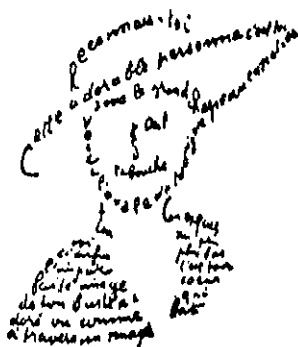 Reconnais-toi
Cette adorable personne c'est toi
Sous le grand chapeau canotier
Œil
Nez
la bouche
Voici l'ovale de ta figure
Ton cou exquis
ci enfin
l'imparfaite
image
de ton buste a
doré vu comme
à travers un nuage
un peu
plus bas
c'est ton
cœur
qui
bat